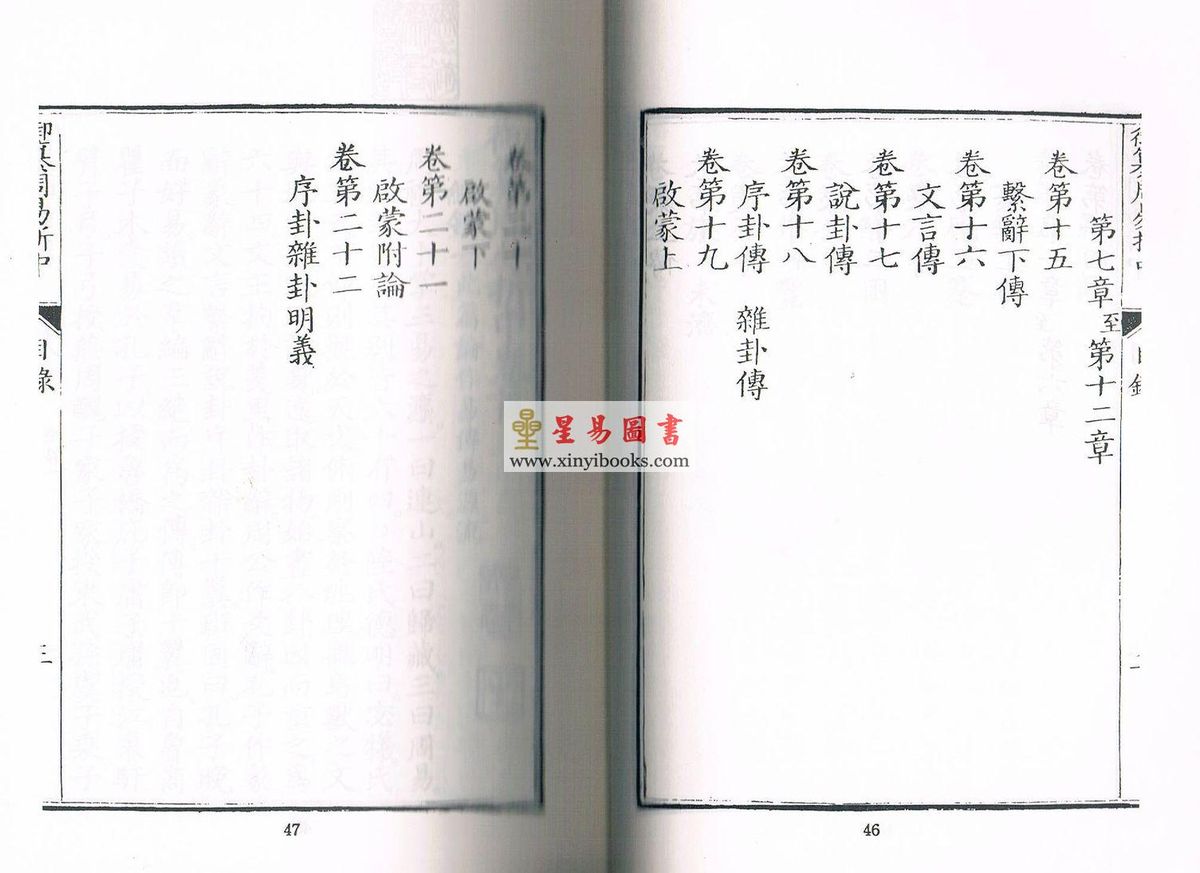 第七章至第十二章
卷第十五
繫辭下傳
卷第十六
文言傳
卷第十七
說卦傳
卷第十八
序卦傳 雜卦傳
卷第十九
啟蒙上
46
卷第二十
啟蒙下
卷第二十一
啟蒙附論
卷第二十二
序卦雜卦明義
御纂周易折中
目錄
三
47
星易圖書
www.xinyibooks.com